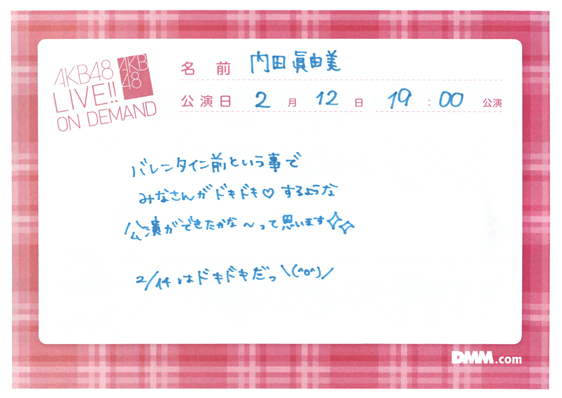 AKB48
LIVE!!
ON DEMAND
AKB
48
名前 内田眞由美
公演日 2月12日 19:00 公演
バレンタイン前という事で
みなさんがドキドキ♡するような
公演ができたかな〜って思います✧✧
2/14はドキドキだっ\(^o^)/
DMM.com